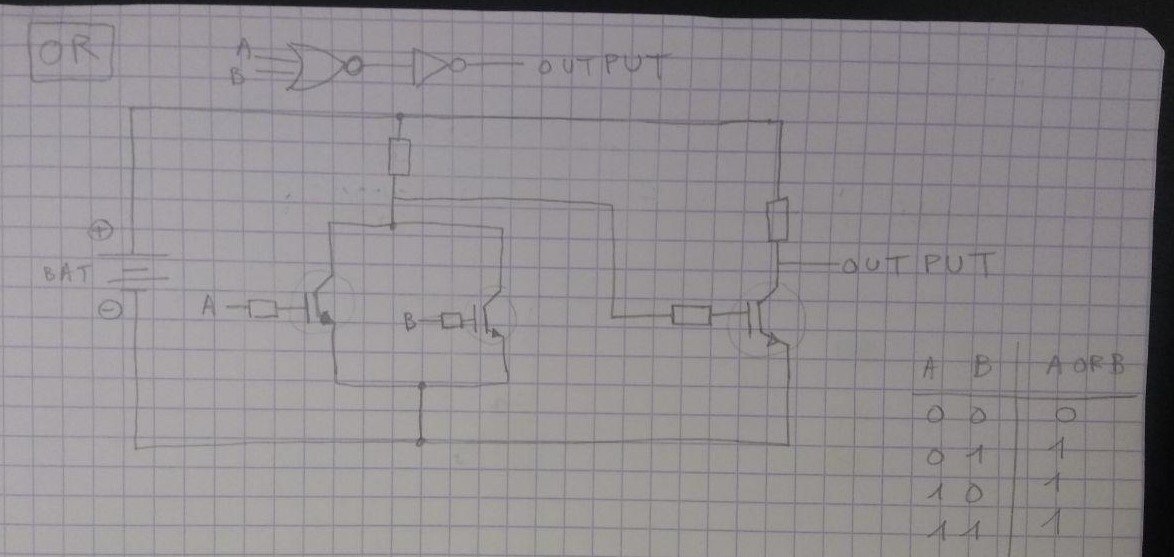 OR
A
B
OUTPUT
+
BAT
-
A
B
OUTPUT
A B A OR B
0 0 0
0 1 1
1 0 1
1 1 1